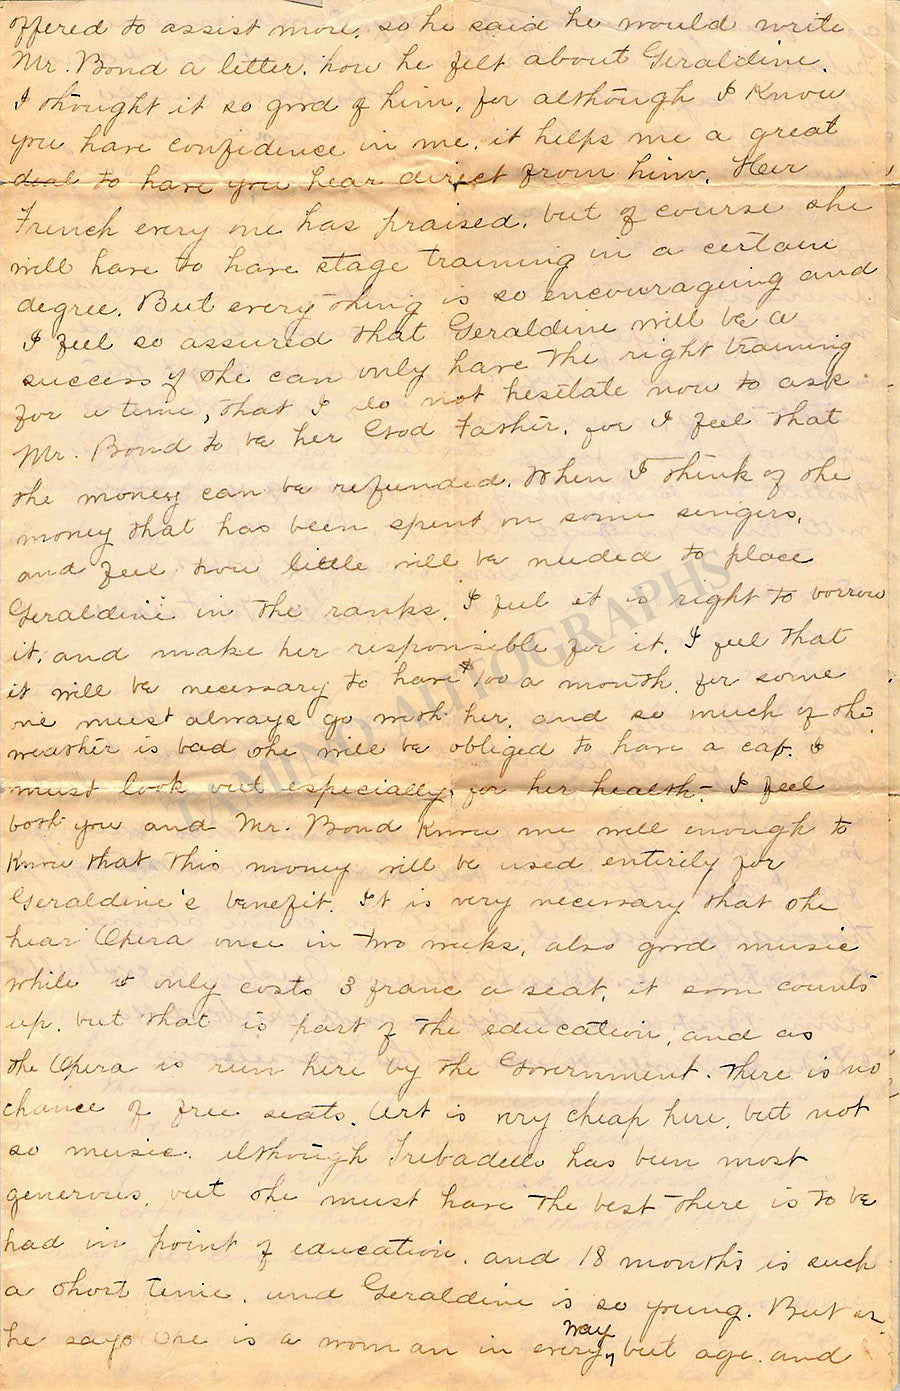 offered to assist more, so he said he would write
Mr. Bond a letter, how he felt about Geraldine.
I thought it so good of him, for although I know
you have confidence in me, it helps me a great
deal to have you hear direct from him. Her
French every one has praised, but of course she
will have to have stage training in a certain
degree. But every thing is so encourageing and
I feel so assured that Geraldine will be a
success if she can only have the right training
for a time, that I do not hesitate now to ask
Mr. Bond to be her God Father, for I feel that
the money can be refunded. When I think of the
money that has been spent on some singers,
and feel how little will be needed to place
Geraldine in the ranks, I feel it is right to borrow
it, and make her responsible for it. I feel that
it will be necessary to have $100 a month, for some
one must always go with her, and so much of the
weather is bad she will be obliged to have a cab. I
must look out especially for her health - I feel
both you and Mr. Bond know me well enough to
know that this money will be used entirely for
Geraldine's benefit. It is very necessary that she
hear Opera once in two weeks, also good music
while it only costs 3 franc a seat, it soon counts
up, but that is part of the education, and as
the Opera is run here by the Government. There is no
chance of free seats. Art is very cheap here, but not
so music. Although Trabadello has been most
generous, but she must have the best there is to be
had in point of education, and 18 months is such
a short time, and Geraldine is so young. But as
he says she is a woman in every way, but age, and
TAMINO AUTOGRAPHS